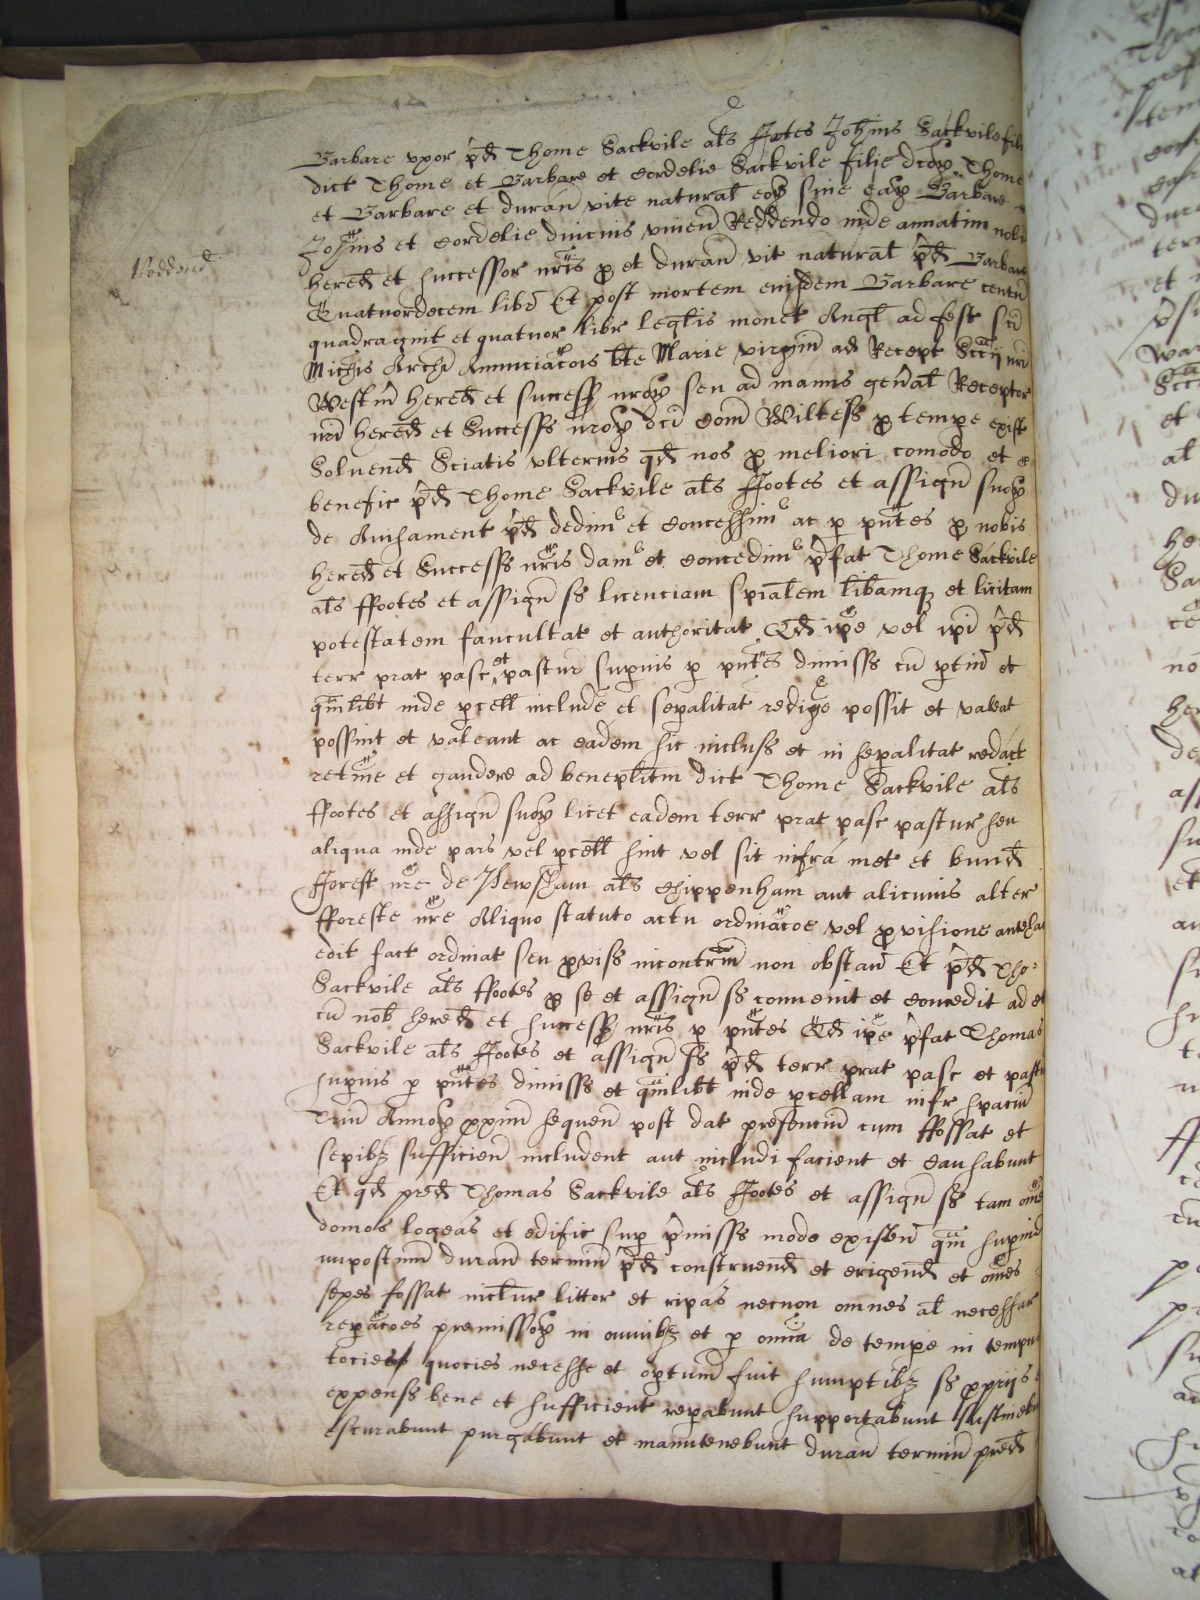 Barbare uxor p̄d Thome Sackvile als ffootes Johīnis Sackvile fil
dict Thome et Barbare et Cordelie Sackvile filie dcoꝝ Thome
et Barbare et durañ vite natural eoꝝ sive eaꝝ Barbare
Johīnis et Cordelie diucius viveñ Reddendo inde annatim nob
Reddend
hered et successor nr̄is ꝓ et durañ vit natural p̄d Barbare
Quatuordecem libr̄ Et post mortem eiusdem Barbare centū
quadragint et quatuor libr legalis monet Angl ad fest sc̄i
Mich̄is Arch̄i Annunciac̄ois b̄te Marie virginī ad Recept Scc̄ij nr̄i
Westm̄ hered et success nr̄oꝝ seu ad manus gen̄al Receptor
nr̄i hered et Successs nr̄oꝝ dc̄i Com̄ Wiltess ꝓ tempe exist
Solvend Sciatis ulterius qd nos ꝓ meliori comodo et
benefic p̄d Thome Sackvile als ffootes et assigñ suoꝝ
de Avisament p̄d dedimꝰ et concessimꝰ ac p pn̄tes ꝓ nobis
hered et Successs nr̄is damꝰ et concedimꝰ p̄fat Thome Sackvile
als ffootes et assigñ ss licenciam sp̄ialem lib̄amqꝫ et licitam
potestatem faucultat et authoritat Qd ip̄e vel ip̄i p̄d
terr prat pasc et pastur sup̄ius p pn̄tes dimisss cū ptin̄ et
qm̄libt inde p̄cell includē et sep̄alitat redigē possit et valeat
possint et valeant ac eadem sic inclus et in sep̄alitat redact
retin̄e et gaudere ad beneplitm dict Thome Sackvile als
ffootes et assigñ suoꝝ licet eadem terr prat pasc pastur seu
aliqua inde pars vel p̄cell sint vel sit infrá met et bund
fforest nr̄e de Pewsham als Chippenham aut alicuius alter
fforeste nr̄e Aliquo statuto actu ordinac̄oe vel ꝓvisione antehac
edit fact ordinat seu ꝓviss incontrm̄ non obstañ Et p̄d Tho:
Sackvile als ffootes ꝓ se et assigñ ss convenit et concedit ad et
cū nob̄ hered et success nr̄is p pn̄tes Qd ip̄e p̄fat Thomas
Sackvile als ffootes et assigñ ss p̄d terr prat pasc et pastu
sup̄ius p pn̄tes dimisss et qm̄libt inde p̄cellam infr spaciū
Triū Annoꝝ pxim̄ sequeñ post dat presenciū cum ffossat et
sepibꝫ sufficieñ includent aut includi facient et causabunt
Et qd pred Thomas Sackvile als ffootes et assigñ ss tam om̄e
domos logeas et edific sup p̄misss modo existeñ qm̄ sup̄ind
impostm̄ durañ termiñ p̄d construend et erigend et om̄es
sepes fossat inclur littor et ripas necnon omnes al necessar
rep̄ac̄oes premissoꝝ in omnibꝫ et p om̄ia de tempe in tempu
tocies quocies necesse et optunū fuit sumptibꝫ ss ꝓprijs
expenss bene et sufficient rep̄abunt supportabunt sustinebu
escurabunt purgabunt et manutenebunt durañ termiñ pred